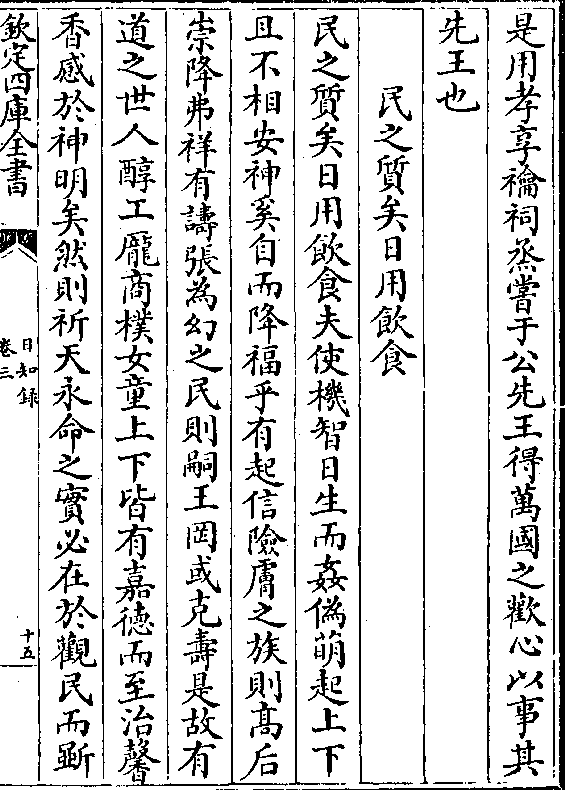 是用孝享禴祠烝嘗于公先王得萬國之歡心以事其
先王也
民之質矣日用飲食
民之質矣日用飲食夫使機智日生而姦偽萌起上下
且不相安神奚自而降福乎有起信險膚之族則髙后
崇降弗祥有譸張為幻之民則嗣王罔或克壽是故有
道之世人醇工龎商樸女童上下皆有嘉德而至治馨
香感於神明矣然則祈天永命之實必在於觀民而斲
欽定四庫全書
日知錄
卷三
十五